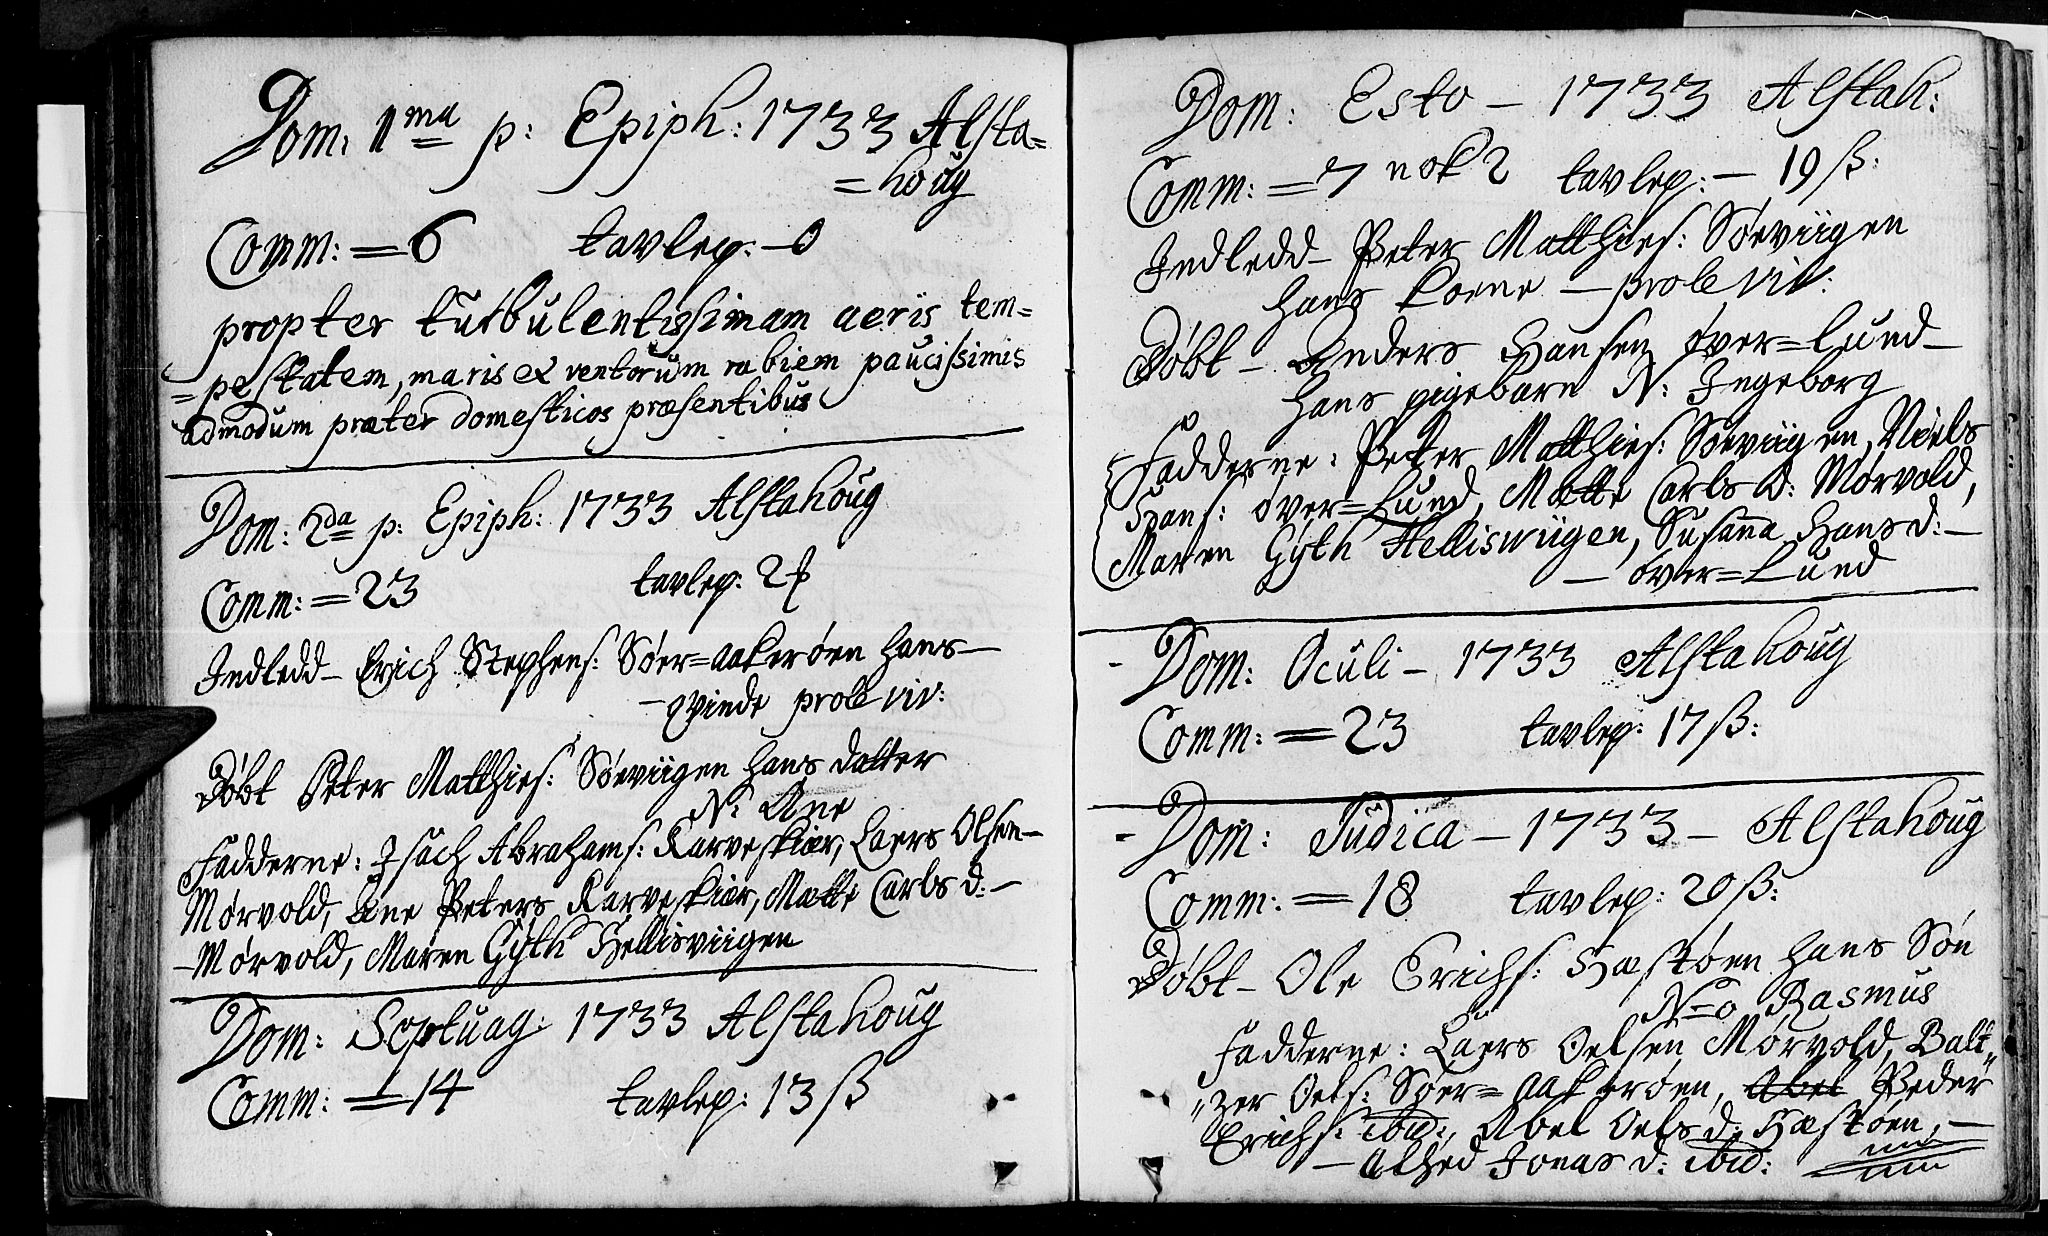 Dom: 1ma p: Epiph: 1733 Alsta=
=houg
Comm: = 6 tavlep: - 0
propter turbulentissimam aeris tem=
=pestatem, maris et ventorum rabiem paucissimis
admodum præter domesticos præsentibus
Dom: 2da p: Epiph: 1733 Alstahoug
Comm: = 23 tavlep: 2
Indledd - Erich Stephens: Søer=aakerøen hans -
- qvinde prole viv:
Døbt Peter Matthies: Søeviigen hans datter
N: Ane
Fadderne: Isach Abrahams: Karveskiær, Laers Olsen -
Mørvold, Ane Peters Karveskiær, Mætte Carls d: -
- Mørvold, Maren Gyth Hellisviigen
Dom: Septuag: 1733 Alstahoug
Comm: = 14 tavlep: 13 ß
Dom: Esto - 1733 Alstah:
Comm: = 7 nok 2 tavlep: - 19 ß:
Indledd - Peter Matthies: Søeviigen
hans kone - prole viv:
Døbt - Anders Hansen øver=Lund -
hans pigebarn N: Ingeborg
Fadderne: Peter Matthies: Søeviigen, Niels
Hans: over=Lund, Mætte Carls d: Mørvold,
Maren Gyth Helliswiigen, Susanna Hans d: -
- over=Lund
Dom: Oculi - 1733 Alstahoug
Comm: = 23 tavlep: 17 ß:
Dom: Judica - 1733 - Alstahoug
Comm: = 18 tavlep: 20 ß:
Døbt - Ole Erichs: Hæstøen hans Søn
N=o Rasmus
Fadderne: Laers Oelsen Mørvold, Balt"
"zer Oels: Søer=aakerøen, Abel Peder
Erichs: ibid:, Abel Oels d: Hæstøen, -
- Alhed Jonas d: ibid: